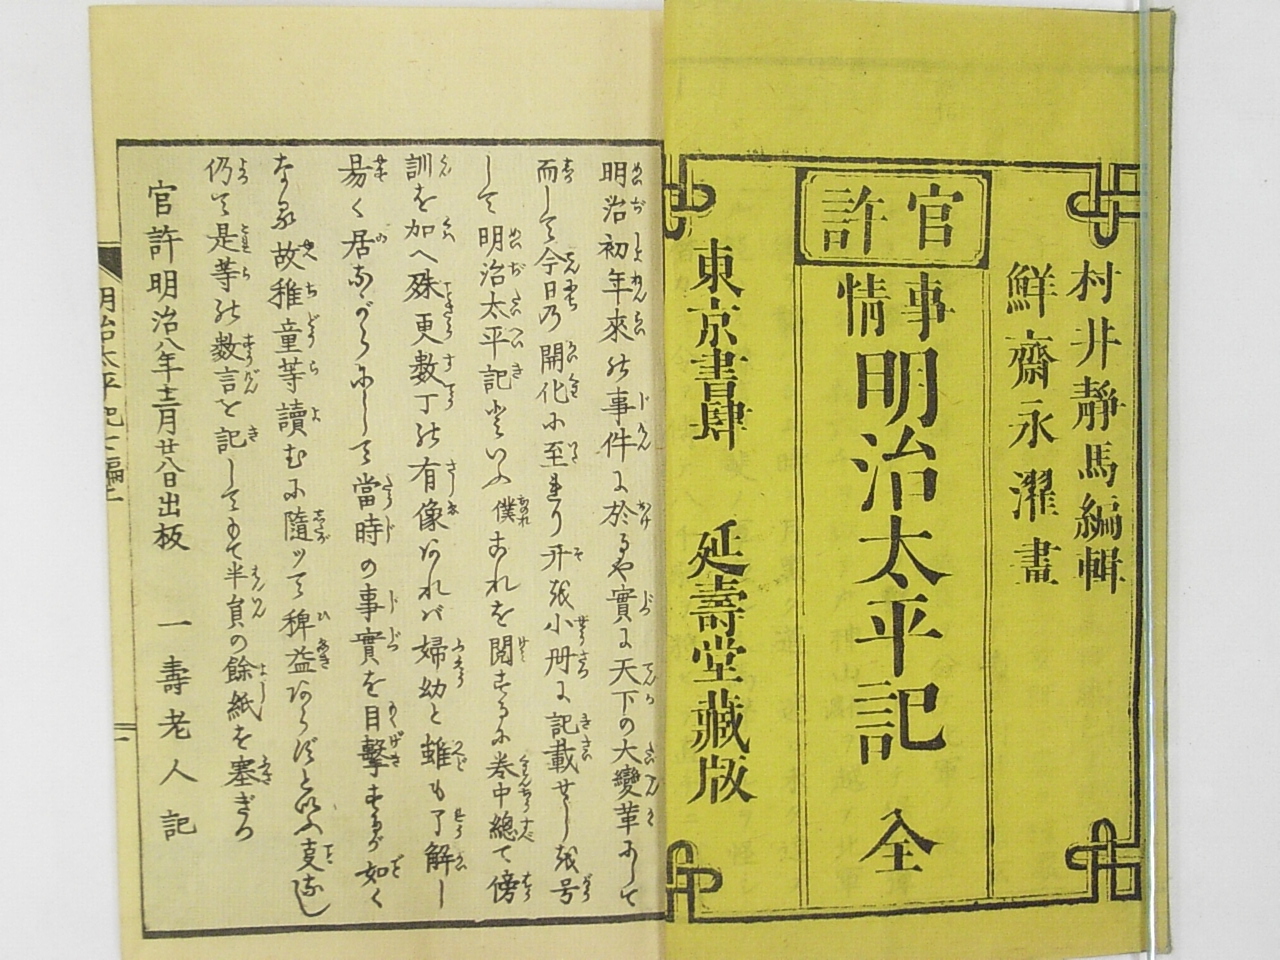 村井靜馬編輯
鮮齋永濯畫
官許
事情 明治太平記 全
東京書肆 延壽堂藏版
明治初年來の事件に於るや實に天下の大變革にして
而して今日の開化に至れり开を小册に記載せしを号
して明治太平記といふ僕これを閲するに巻中總て傍
訓を加へ殊更數丁の有像あれバ婦幼と雖も了解し
易く居ながらにして當時の事實を目擊するが如く
なる故稚童等讀むに隨ツて稗益あらずといふ事なし
仍て是等の數言を記してもて半頁の餘紙を塞ぎつ
官許明治八年十二月廿八日出板 一壽老人記
明治太平記七編二